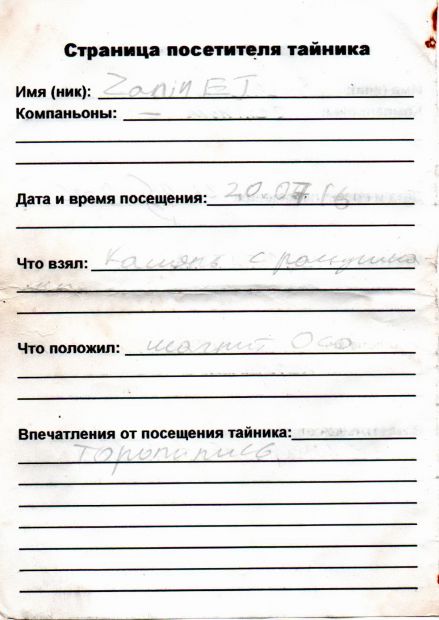 Страница посетителя тайника
Имя (ник): Zanin EJ
Компаньоны: —
Дата и время посещения: 20.07.16
Что взял: Камень с ромашка-
ми
Что положил: магнит
Впечатления от посещения тайника:
Торопились